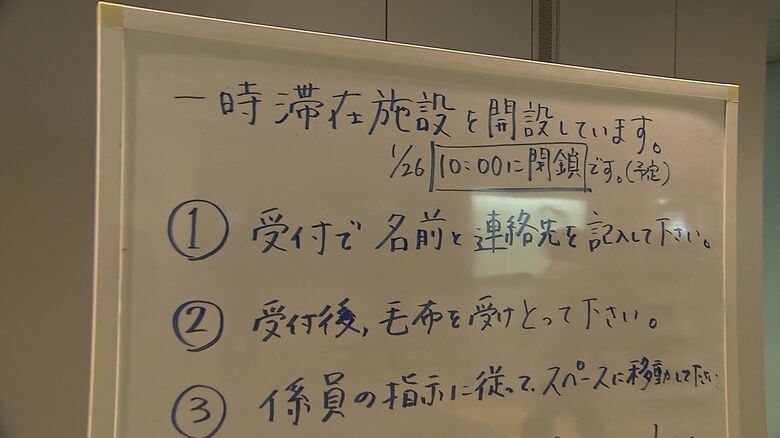 一時滞在施設を開設しています。
1/26 10:00に閉鎖です。(予定)
① 受付で名前と連絡先を記入して下さい。
② 受付後,毛布を受けとって下さい。
③ 係員の指示に従って、スペースに移動して下さい